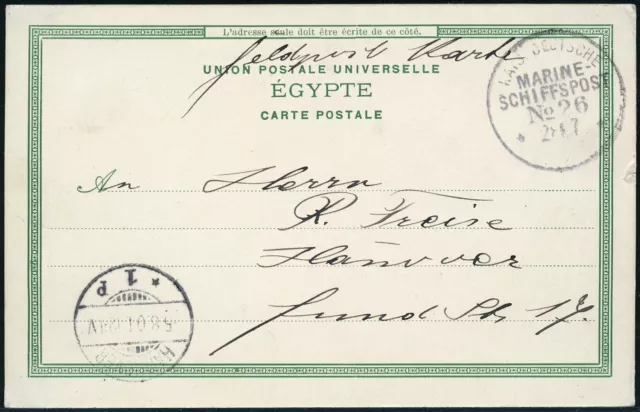 L'adresse seule doit être écrite de ce côté.
Feldpost Karte
UNION POSTALE UNIVERSELLE
ÉGYPTE
CARTE POSTALE
KAIS. DEUTSCHE
MARINE-
SCHIFFSPOST
No 26
An Herrn
R. Freise
Hanover
Str. 17.
* 1 P
5.8.01